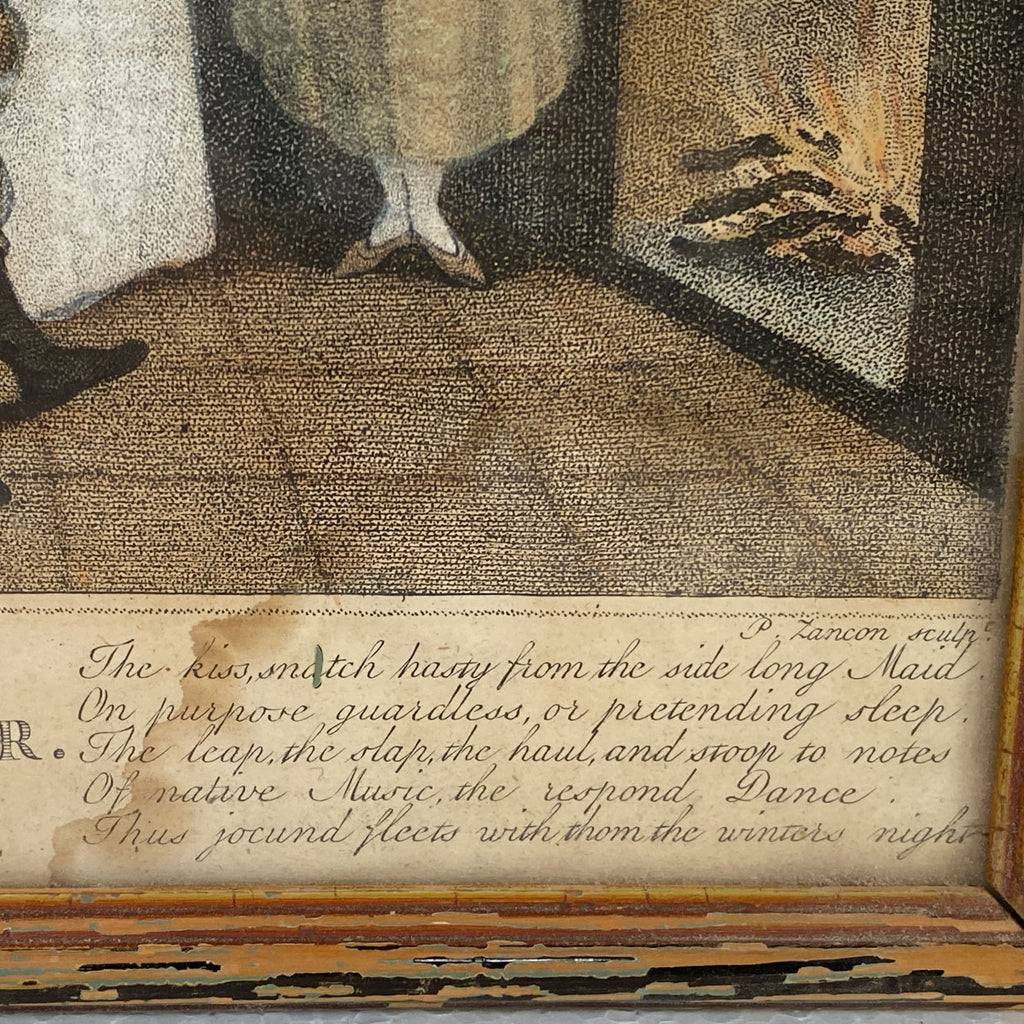 P. Zancon sculpᵗ
The kiss, snatch hasty from the side long Maid.
On purpose guardless, or pretending sleep.
R. The leap, the slap, the haul, and stoop to notes
Of native Music, the respond Dance.
Thus jocund fleets with thom the winters night